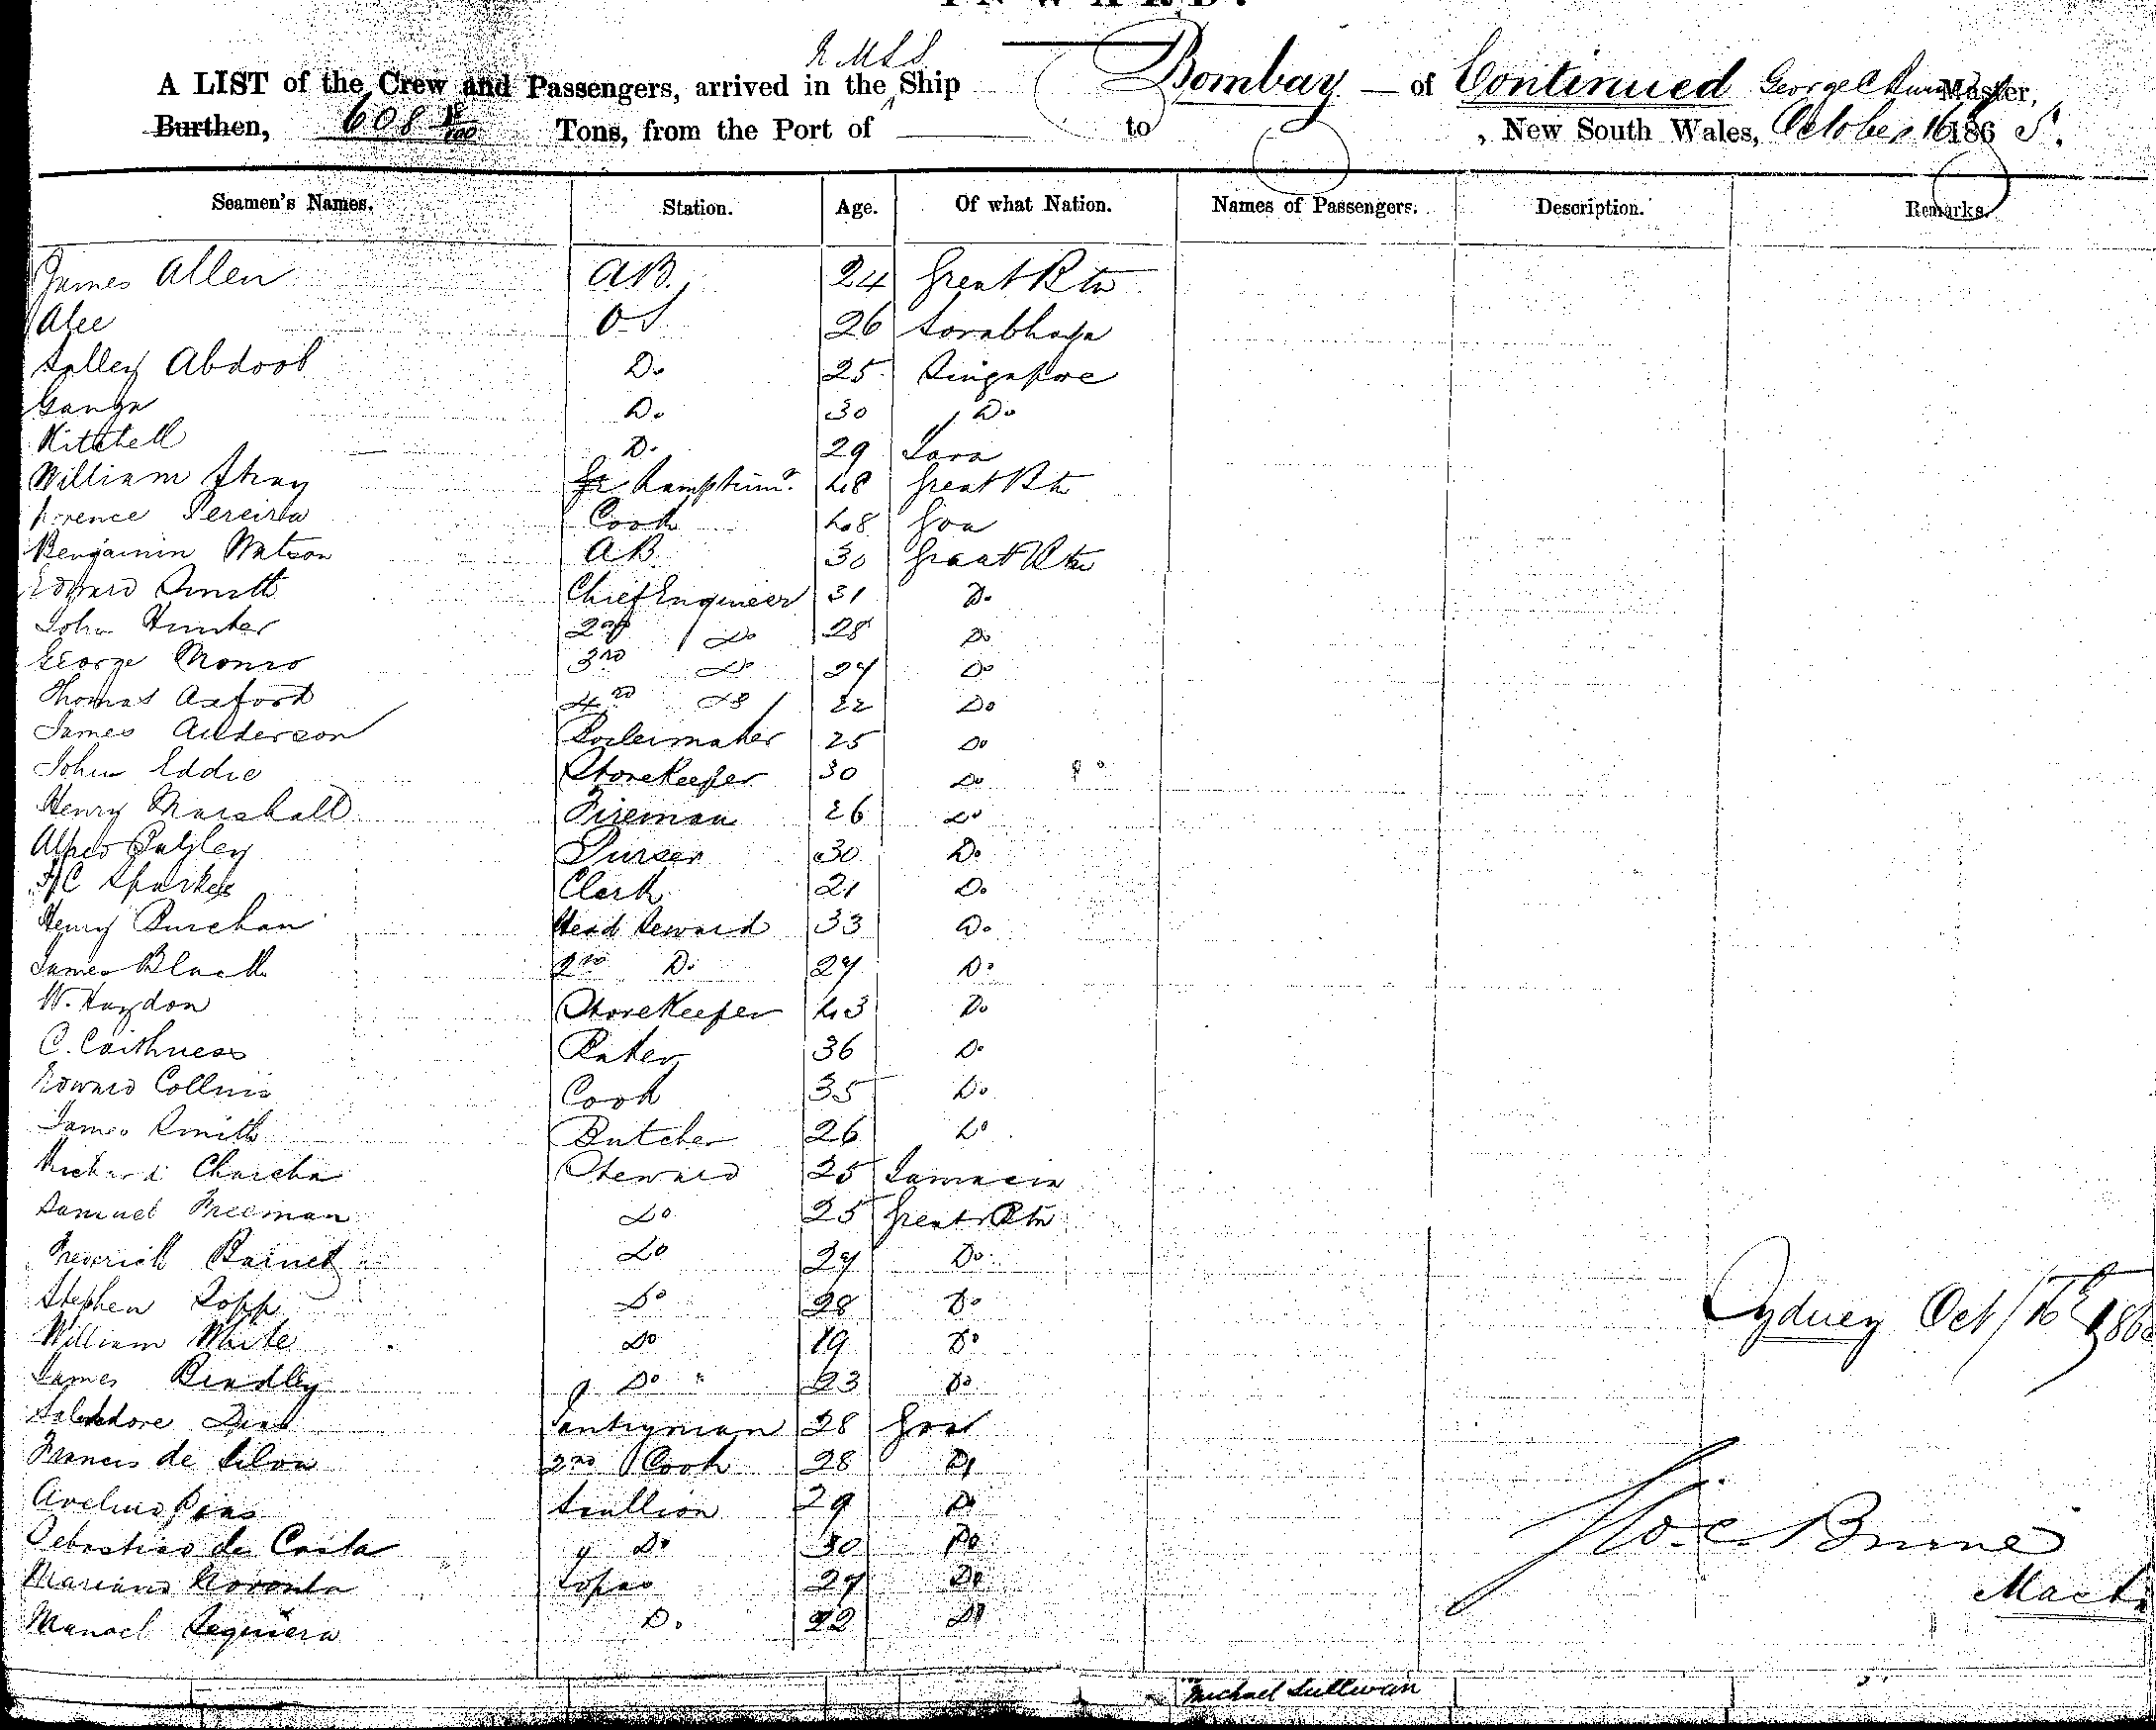 INWARD.
R.M.S.S.
A LIST of the Crew and Passengers, arrived in the Ship Bombay — of Continued George C Master,
Burthen, 608 Tons, from the Port of to , New South Wales, October 16 186 5.
Seamen's Names. Station. Age. Of what Nation. Names of Passengers. Description. Remarks.
James Allen AB. 24 Great Btn
Alee OS 26 Sorabhaya
Salley Abdool Do 25 Singapore
Ganga Do 30 Do
Kitchell Do 29 Java
William 48 Great Btn
Lorence Pereira Cook 48 Goa
Benjamin Watson AB 30 Great Btn
Edward Smith Chief Engineer 31 Do
John Hunter 2nd Do 28 Do
George Monro 3rd Do 27 Do
Thomas Axford 4th Do 22 Do
James Anderson Boilermaker 25 Do
John Eddie Storekeeper 30 Do
Henry Marshall Fireman 26 Do
Alfred Purser 30 Do
C Sparkes Clerk 21 Do
Henry Burchan Head Steward 33 Do
James Black 2nd Do 27 Do
W. Haydon Storekeeper 43 Do
C. Caithness Baker 36 Do
Edward Collins Cook 35 Do
James Smith Butcher 26 Do
Richard Steward 25 Jamacia
Samuel Freeman Do 25 Great Btn
Frederick Barnet Do 27 Do
Stephen Topp Do 28 Do
Sydney Oct/16th 186
William White Do 19 Do
James Bindley Do 23 Do
Salvadore Dias Pantryman 28 Goa
Francis de Silva 2nd Cook 28 Do
Avelino Dias Scullion 29 Do
Sebastiao de Costa Do 30 Do
Mariano Noronha Topas 27 Do
Manoel Sequiera Do 22 Do
Mast.
Michael Sullivan